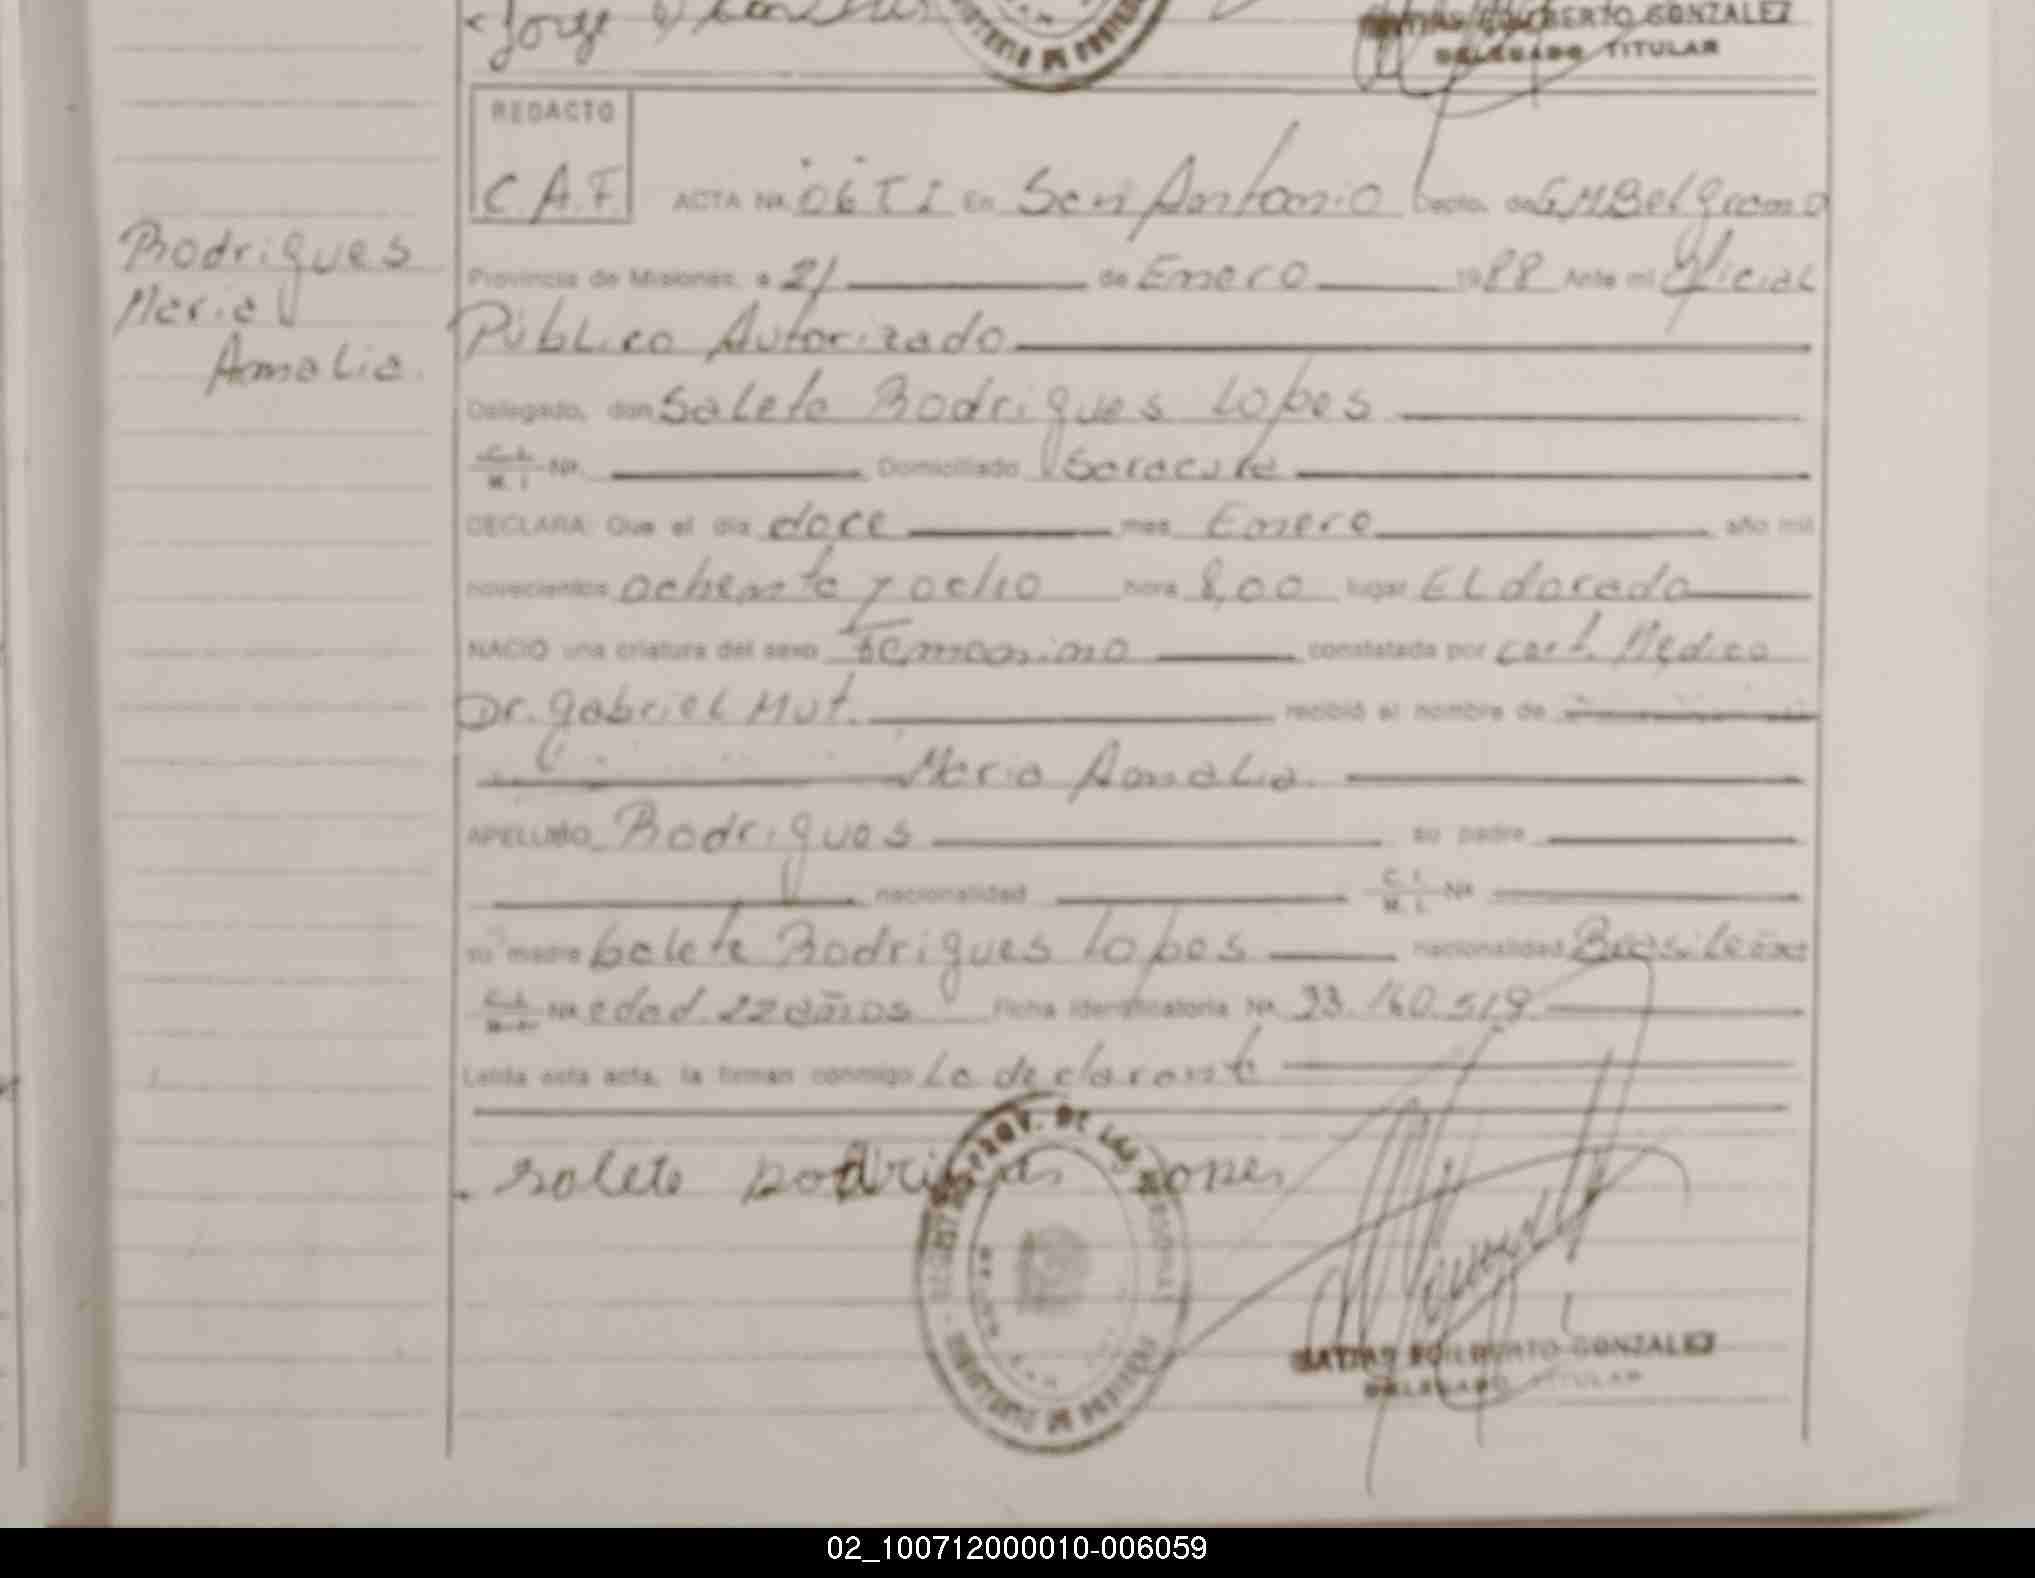 Jorge
GILBERTO GONZALEZ
DELEGADO TITULAR
REDACTO
C.A.F.
ACTA Nº 06 T I En San Antonio Depto. de G M Belgrano
Rodrigues
Maria
Amalia.
Provincia de Misiones, a 21 de Enero 1988 Ante mi Oficial
Público Autorizado
Delegado, don Salete Rodrigues Lopes
C. I. M. I Nº. Domiciliado
DECLARA: Que el día doce mes Enero año mil
novecientos ochenta y ocho hora 8,00 lugar ELdorado
NACIO una criatura del sexo femenino constatada por cert. Medico
Dr. gabriel Mut. recibió el nombre de
Maria Amalia.
APELLIDO Rodrigues su padre
nacionalidad C. I. M. I. Nº
su madre Salete Rodrigues Lopes nacionalidad Brasileña
C. I. Nº edad 22 años Ficha Identificatoria Nº 93.160.519
Leída esta acta, la firman conmigo La declarante
PROV. DE
salete Rodrigues Lopes
GONZALEZ
DELEGADO TITULAR
02_100712000010-006059